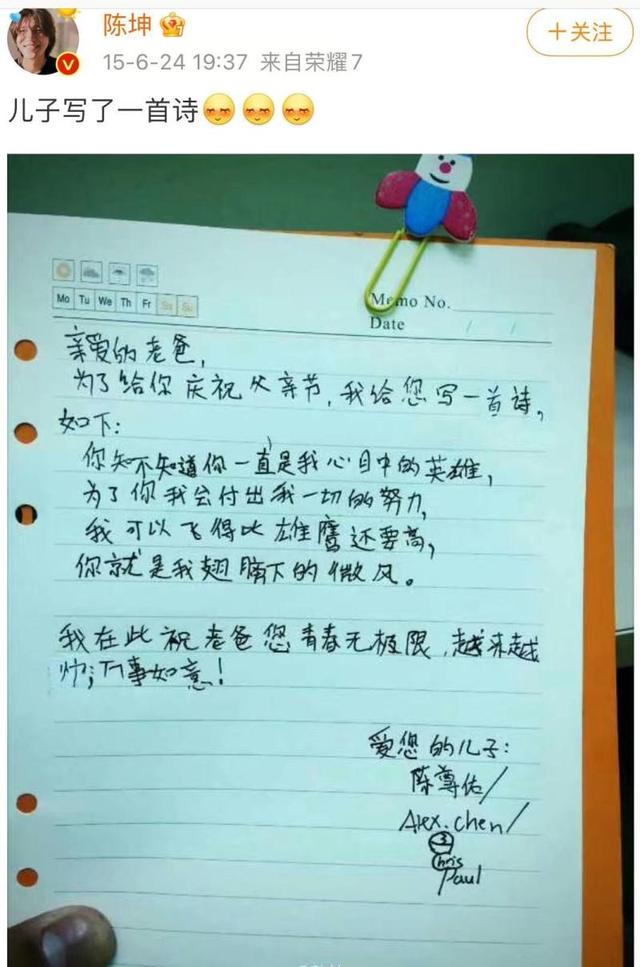 陈坤
15-6-24 19:37 来自荣耀7
+关注
儿子写了一首诗
Mo Tu We Th Fr Sa Su
Memo No.
Date / /
亲爱的老爸，
为了给你庆祝父亲节，我给您写一首诗，
如下：
你知不知道你一直是我心目中的英雄，
为了你我会付出我一切的努力，
我可以飞得比雄鹰还要高，
你就是我翅膀下的微风。
我在此祝老爸您青春无极限，越来越
帅；万事如意！
爱您的儿子：
陈尊佑/
Alex.chen/
3
Chris
Paul